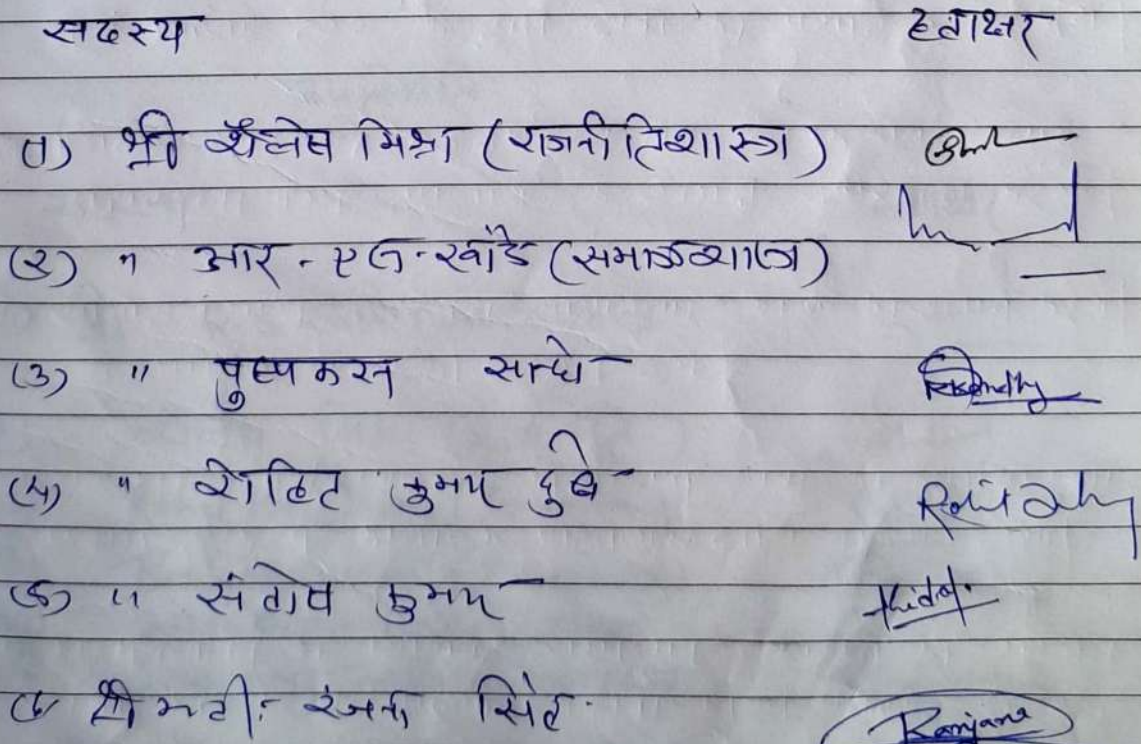 सदस्य हस्ताक्षर
(1) श्री शैलेष मिश्रा (राजनीतिशास्त्र)
(2) " आर. एन. खांडे (समाजशास्त्र)
(3) "
(4) " रोहित कुमार दुबे Rohit
(5) " संतोष कुमार
(6) श्रीमती रंजना सिंह Ranjana